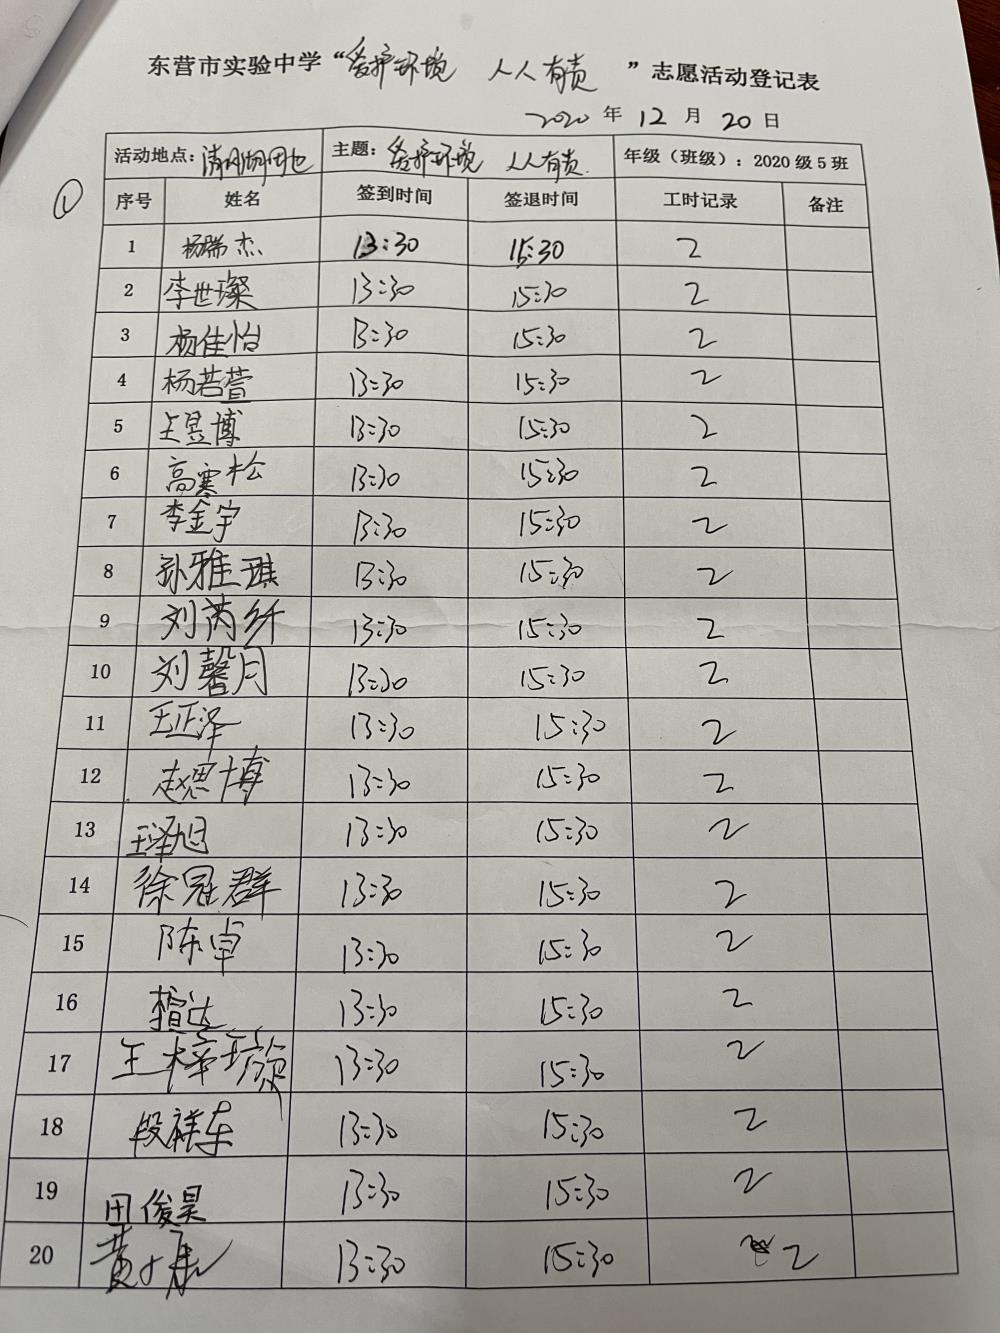 东营市实验中学“爱护环境 人人有责”志愿活动登记表
2020 年 12 月 20 日
活动地点: 主题: 爱护环境 人人有责 年级（班级）: 2020 级 5 班
①
序号 姓名 签到时间 签退时间 工时记录 备注
1 杨瑞杰 13:30 15:30 2
2 李世璨 13:30 15:30 2
3 杨佳怡 13:30 15:30 2
4 杨若萱 13:30 15:30 2
5 昱博 13:30 15:30 2
6 高寒松 13:30 15:30 2
7 李金宇 13:30 15:30 2
8 孙雅琪 13:30 15:30 2
9 刘芮纤 13:30 15:30 2
10 刘馨月 13:30 15:30 2
11 王正泽 13:30 15:30 2
12 赵思博 13:30 15:30 2
13 王泽旭 13:30 15:30 2
14 徐冠群 13:30 15:30 2
15 陈卓 13:30 15:30 2
16 13:30 15:30 2
17 王梓 13:30 15:30 2
18 段祥车 13:30 15:30 2
19 田俊昊 13:30 15:30 2
20 黄 13:30 15:30 2